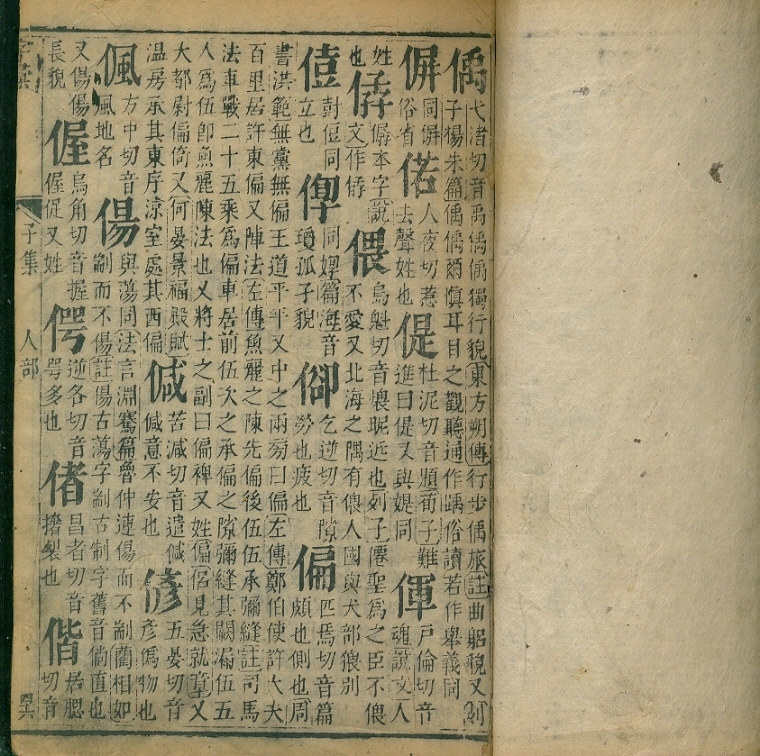 偊弋渚切音禹偊偊獨行貌東方朔傳行步偊旅註曲躬貌又列子楊朱篇偊偊爾愼耳目之觀聽通作踽俗讀若作舉義同
偋同偋俗省偌人夜切惹去聲姓也偍杜泥切音題荀子難進曰偍又與媞同㑮戶倫切音魂說文人
姓也僻本字說文作偎烏魁切音煨昵近也列子僊聖爲之臣不偎不愛又北海之隅有偎人國與犬部猥別
尌侸同立也同婢篇海音瓊孤孑貌乞逆切音隙勞也疲也偏匹焉切音篇頗也側也周
書洪範無黨無偏王道平平又中之兩旁曰偏左傳鄭伯使許大夫
百里居許東偏又陣法左傳魚麗之陳先偏後伍伍承彌縫註司馬
法車戰二十五乘爲偏車居前伍次之承偏之隙彌縫其闕漏伍五
人爲伍卽魚麗陳法也又將士之副曰偏裨又姓偏侶見急就章又
大都尉偏倚又何晏景福殿賦温房承其東序涼室處其西偏㑘苦減切音遣㑘意不安也偐五晏切音彥僞物也
偑方中切音風地名偒與蕩同法言淵騫篇魯仲連偒而不剬藺相如剬而不偒註偒古蕩字剬古制字舊音倘直也
又偒偒長貌偓烏角切音握偓促又姓偔逆各切音咢多也偖昌者切音撦裂也偕居腮切音
子集 人部